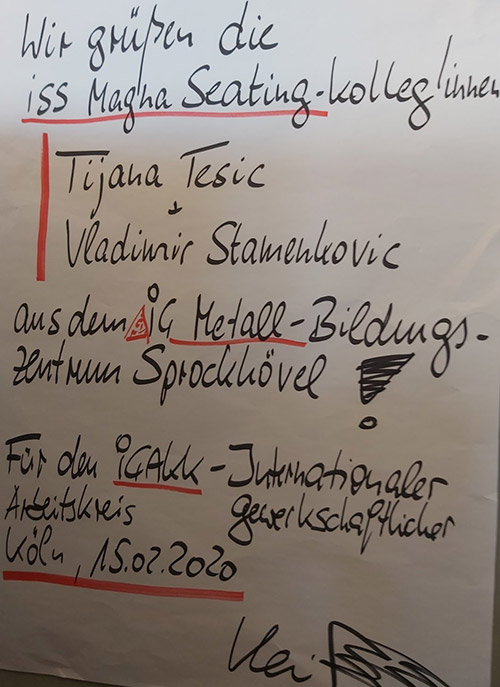 Wir grüßen die
iSS Magna Seating-kolleg/innen
Tijana Tesic
+
Vladimir Stamenkovic
aus dem iG Metall-Bildungs-
zentrum Sprockhövel !
Für den iGAKK-Internationaler
Arbeitskreis gewerkschaftlicher
Köln, 15.02.2020